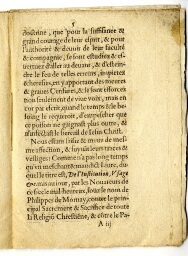 5
doctrine, que pour la suffisance &
grand courage de leur esprit, & pour
l'authorité & deuoir de leur faculté
& compagnie, se sont estudiez & esuer-
tuez d'aller au deuant, & d'estein-
dre le feu de telles erreurs, impietez
& heresies, en y apportant des meures
& graues Censures, & se sont efforcez
non seulement de viue voix, mais en-
cor par escrit, quand le temps & le be-
soing le requeroit, d'empescher que
ce poison ne gaignast plus outre, &
n'infectast le bercail de Iesus Christ.
Nous estans issus & meus de mes-
me affection, & suyuans leurs traces &
vestiges: Comme n'a pas long temps
qu'vn meschant & maudit Liure, du-
quel le titre est, De l'Institution, Vsage
par les Nouateurs de
ce siecle mal-heureux, soubs le nom de
Philippes de Mornay, contre le prin-
cipal Sacrement & Sacrifice de toute
la Religiõ Chrestiẽne, & cõtre le Pa-
A iij